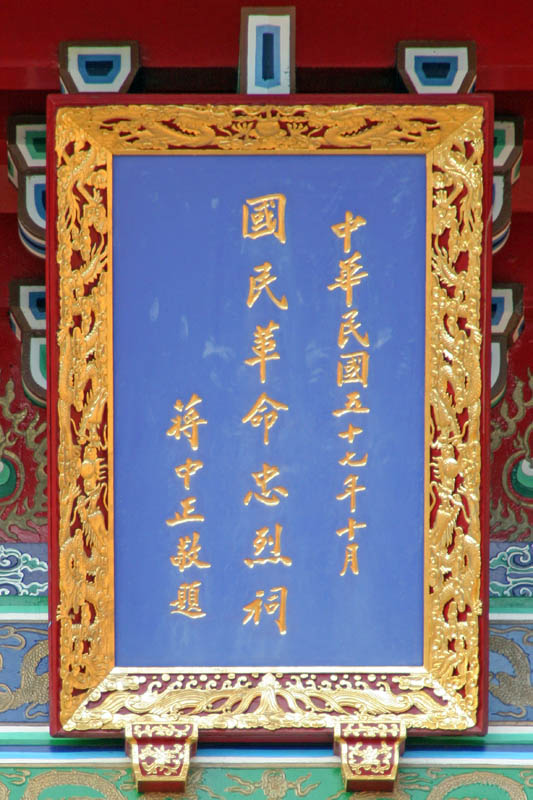 中華民國五十七年十月
國民革命忠烈祠
蔣中正敬題